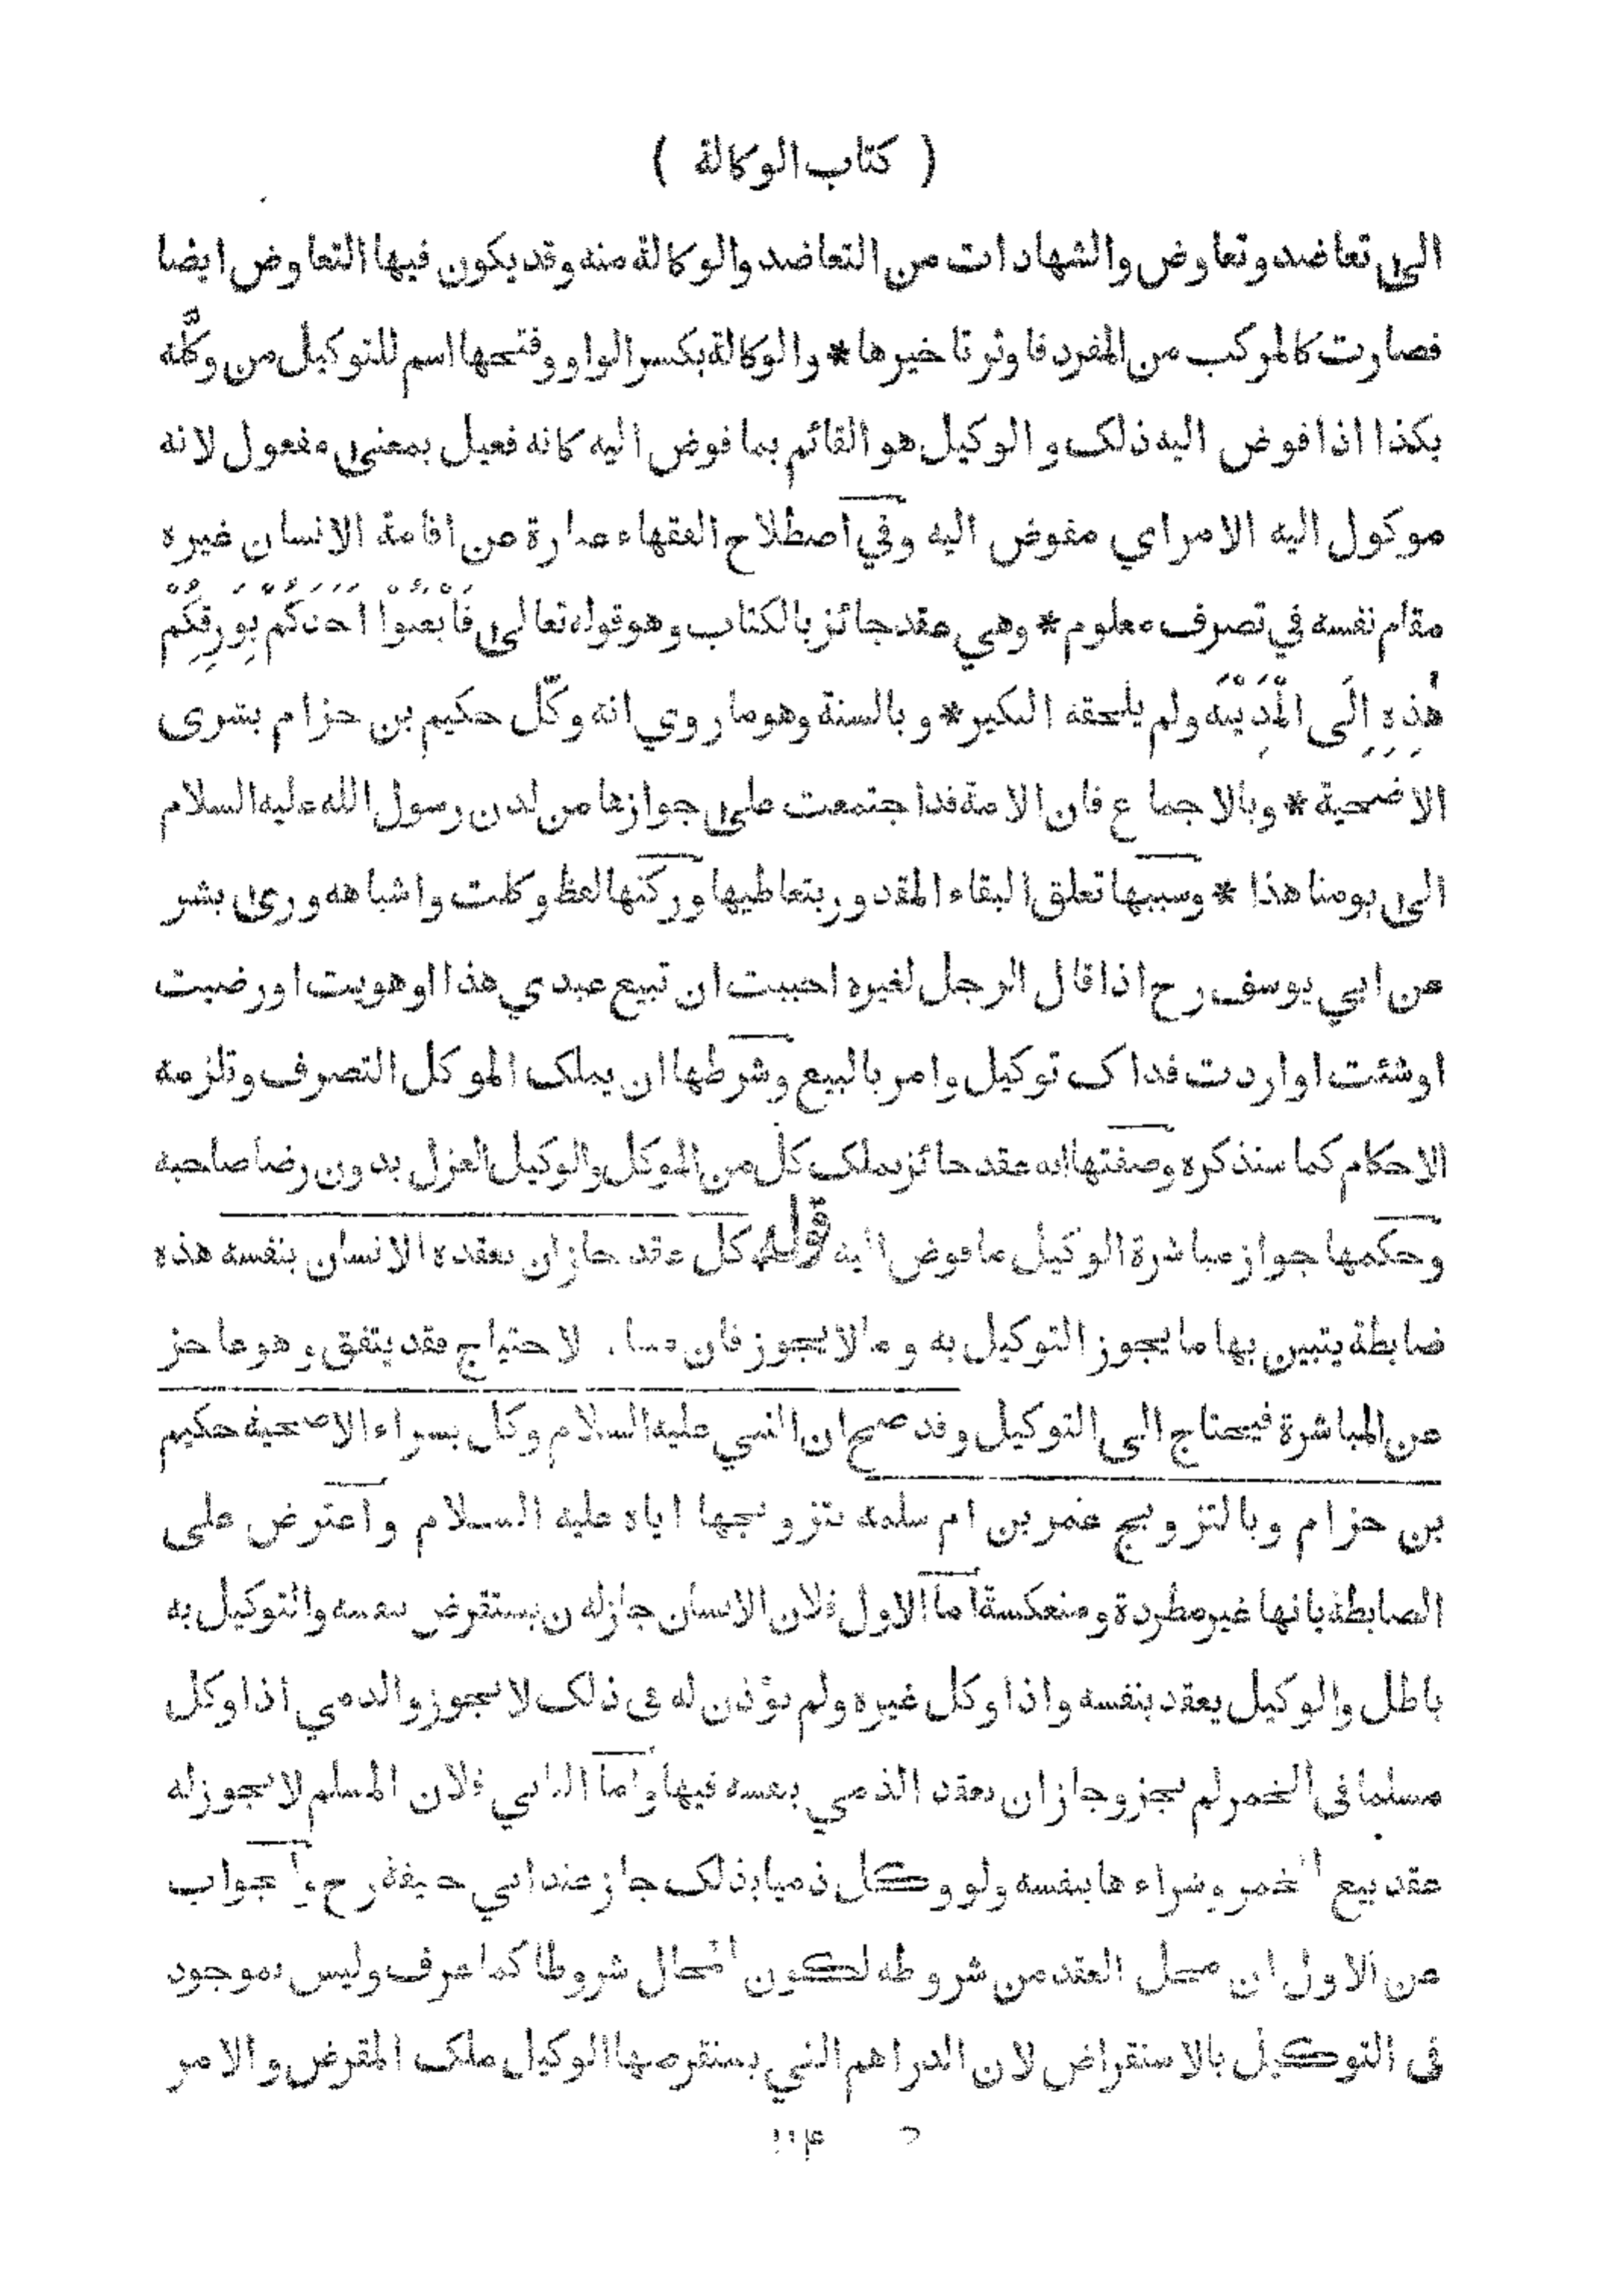 ( كتاب الوكالة )
الىٰ تعاضد وتعاوض والشهادات من التعاضد والوكالة منه وقد يكون فيها التعاوض ايضا
فصارت كالمركب من المفرد فاوثر تاخيرها * والوكالة بكسر الواو وفتحها اسم للتوكيل من وكّله
بكذا اذا فوض اليه ذلك والوكيل هو القائم بما فوض اليه كانه فعيل بمعنىٰ مفعول لانه
موكول اليه الامر اي مفوض اليه وفي اصطلاح الفقهاء عبارة عن اقامة الانسان غيره
مقام نفسه في تصرف معلوم * وهي عقد جائز بالكتاب وهو قوله تعالىٰ فَابْعَثُوْا اَحَدَكُمْ بِوَرِقِكُمْ
هٰذِهِ اِلَى الْمَدِيْنَة ولم يلحقه النكير * وبالسنة وهو ما روي انه وكّل حكيم بن حزام بشرى
الاضحية * وبالاجماع فان الامة قد اجتمعت علىٰ جوازها من لدن رسول الله عليه السلام
الىٰ يومنا هذا * وسببها تعلق البقاء المقدور بتعاطيها وركنها لفظ وكلت واشباهه ورىٰ بشر
عن ابي يوسف رح اذا قال الرجل لغيره احببت ان تبيع عبدي هذا او هويت او رضيت
او شئت او اردت فذاك توكيل وامر بالبيع وشرطها ان يملك الموكل التصرف وتلزمه
الاحكام كما سنذكره وصفتها انه عقد جائز يملك كل من الموكل والوكيل العزل بدون رضا صاحبه
وحكمها جواز مباشرة الوكيل ما فوض اليه قوله كل عقد جاز ان يعقده الانسان بنفسه هذه
ضابطة يتبين بها ما يجوز التوكيل به وما لا يجوز فان لاحتياج فقد يتفق وهو عاجز
عن المباشرة فيحتاج الى التوكيل وقد صح ان النبي عليه السلام وكل بشراء الاضحية حكيم
بن حزام وبالتزويج عمر بن ام سلمة بتزويجها اياه عليه السلام واعترض على
الضابطة بانها غير مطردة ومنعكسة اما الاول فلان الانسان جاز له ن يستقرض بنفسه والتوكيل به
باطل والوكيل يعقد بنفسه واذا وكل غيره ولم يؤذن له فى ذلك لا يجوز والذمي اذا وكل
مسلما فى الخمر لم يجز وجاز ان يعقد الذمي بنفسه فيها واما الثاني فلان المسلم لا يجوز له
عقد بيع الخمر وشراءها بنفسه ولو وكل ذميا بذلك جاز عند ابي حنيفة رح والجواب
عن الاول ان محل العقد من شروطه لكون المحال شروطا كما عرف وليس بموجود
فى التوكيل بالاستقراض لان الدراهم التي يستقرضها الوكيل ملك المقرض والامر